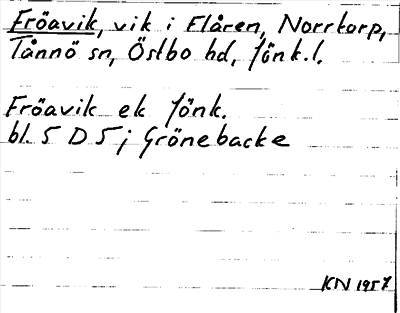 Fröavik, vik i Flåren, Norrtorp,
Tånnö sn, Östbo hd, Jönk.l.
Fröavik ek Jönk.
bl. 5 D 5 j Grönebacke
KN 1957